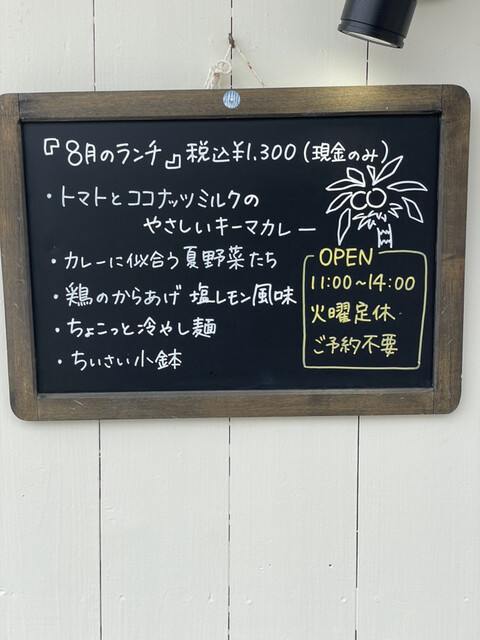 『8月のランチ』税込¥1,300(現金のみ)
・トマトとココナッツミルクの
やさしいキーマカレー
・カレーに似合う夏野菜たち
・鶏のからあげ 塩レモン風味
・ちょこっと冷やし麺
・ちいさい小鉢
OPEN
11:00~14:00
火曜定休
ご予約不要